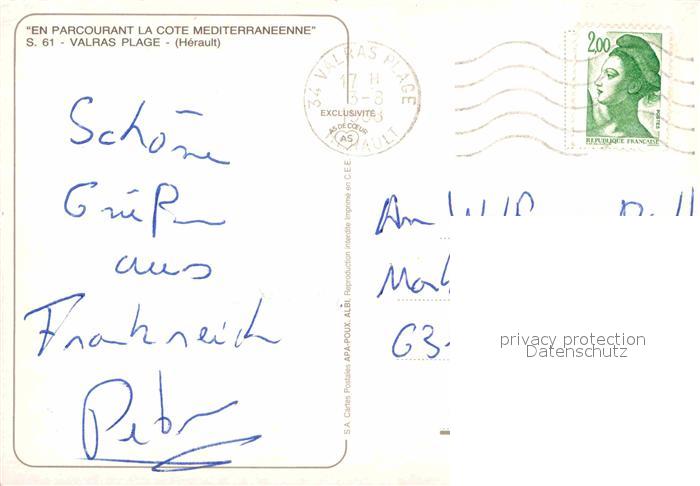 "EN PARCOURANT LA COTE MEDITERRANEENNE"
S. 61 - VALRAS PLAGE - (Hérault)
Schöne
Grüße
aus
Frankreich
Peter
34 VALRAS PLAGE
17 H
3-8
1988
HERAULT
EXCLUSIVITÉ
AS DE CŒUR
AS
S.A. Cartes Postales APA-POUX, ALBI, Reproduction interdite Imprimé en C.E.E.
2,00
POSTES
REPUBLIQUE FRANÇAISE
63-
privacy protection
Datenschutz